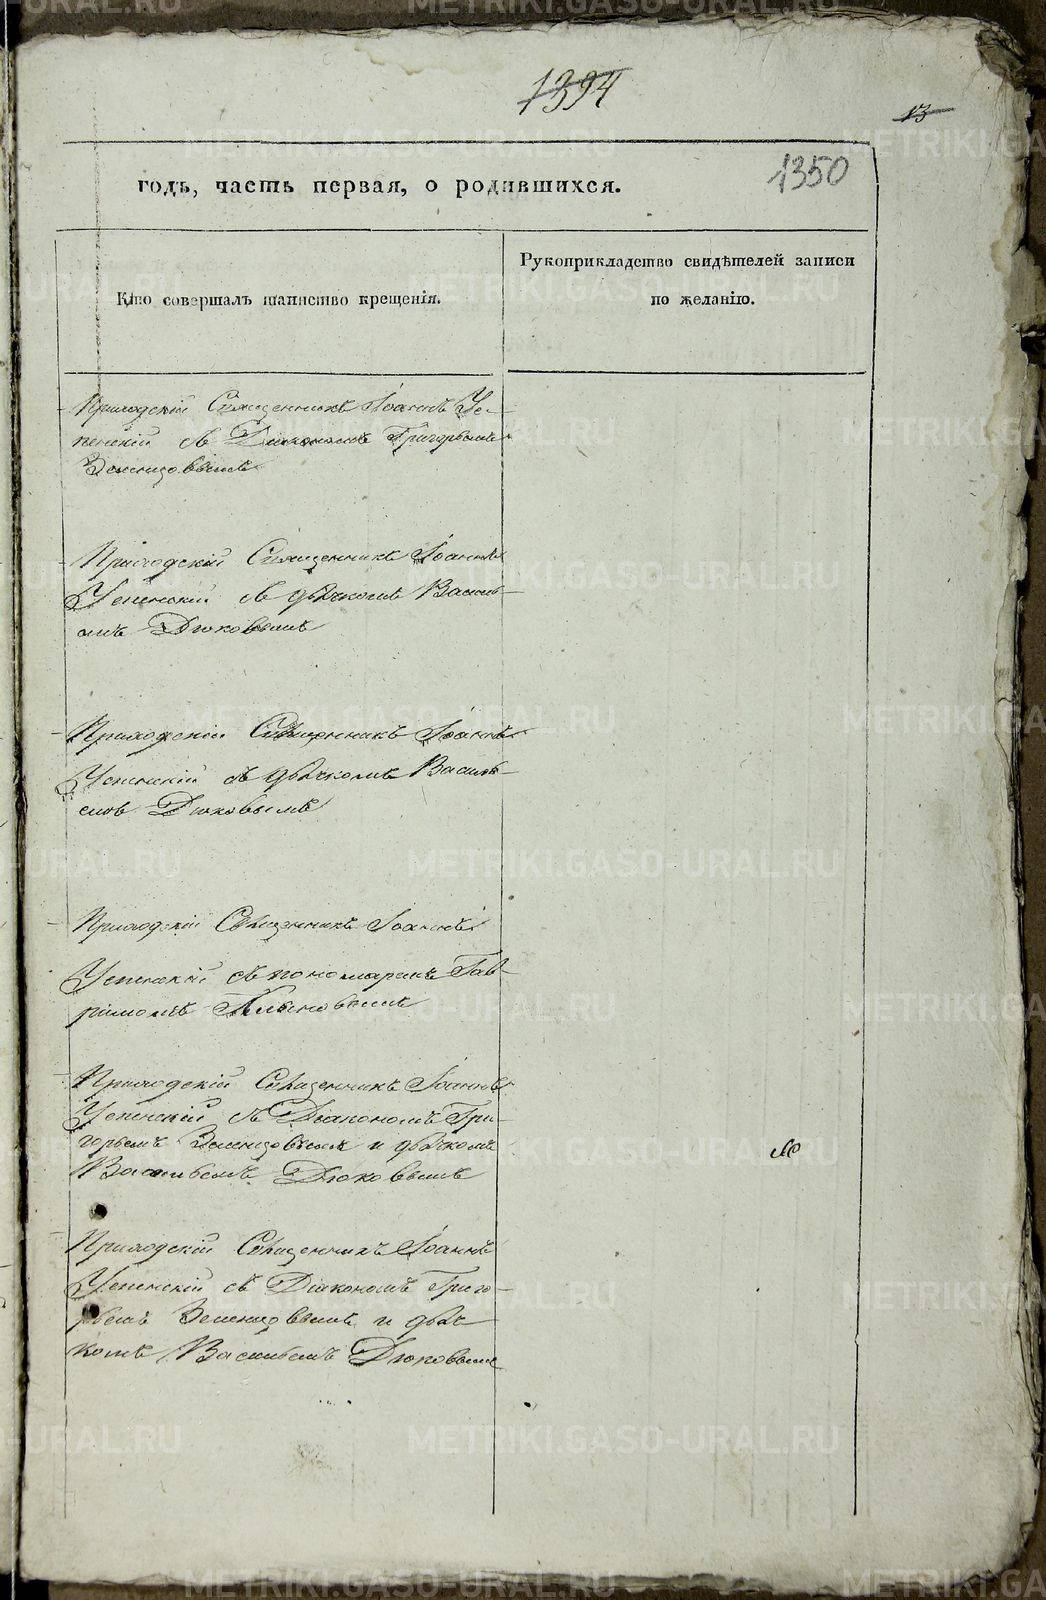 1394
13
1350
годъ, часть первая, о родившихся.
Кто совершалъ таинство крещенія.
Рукоприкладство свидѣтелей записи
по желанію.
Приходскій Священникъ Іоаннъ Ус-
пенскій съ Діакономъ Григорьемъ
Земенцовымъ
Приходскій Священникъ Іоаннъ
Успенскій съ дьячкомъ Василь-
емъ Дюковымъ
Приходскій Священникъ Іоаннъ
Успенскій съ дьячкомъ Василь-
емъ Дюковымъ
Приходскій Священникъ Іоаннъ
Успенскій съ пономаремъ Гав-
ріиломъ
Приходскій Священникъ Іоаннъ
Успенскій съ Діакономъ Гри-
горьемъ Земенцовымъ и дьячкомъ
Васильемъ Дюковымъ
Приходскій Священникъ Іоаннъ
Успенскій съ Діакономъ Григо-
рьемъ Земенцовымъ и дьяч-
комъ Васильемъ Дюковымъ
METRIKI.GASO-URAL.RU